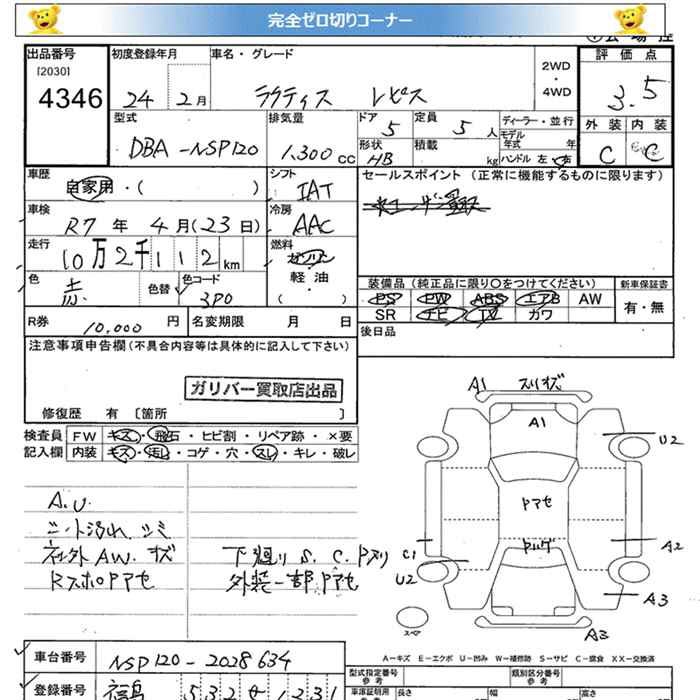 完全ゼロ切りコーナー
出品番号 初度登録年月 車名・グレード 2WD ・ 4WD 評価点
[2030]
4346 24 2月 ラクティス レピス 3.5
型式 排気量 ドア 定員 ディーラー・並行 外装 内装
DBA-NSP120 1,300cc 5 5人 モデル年式 年 C C
形状 積載
HB kg ハンドル 左 右
車歴 シフト セールスポイント(正常に機能するものに限ります)
自家用・( ) IAT
車検 冷房
R7年 4月(23日) AAC
走行 燃料
10万2千112km ガソリン 軽・油 ( )
色 色替 色コード 装備品(純正品に限り○をつけてください) 新車保証書
赤 3P0 PS PW ABS エアB AW 有・無
SR ナビ TV カワ
R券 10,000円 名変期限 月 日 後日品
注意事項申告欄(不具合内容等は具体的に記入して下さい)
ガリバー買取店出品
修復歴 有 [箇所 ]
検査員 FW キズ・飛石・ヒビ割・リペア跡・×要
記入欄 内装 キズ・汚レ・コゲ・穴・スレ・キレ・破レ
A.U.
シート汚れ シミ
ネズ外 AW.キズ 下廻り S.C.Pスリ
RスポロPアセ 外装一部Pアセ
A1 スリキズ
A1
U2
Pアセ
Pハゲ
C1
A2
U2
A3
スペア
A3
A-キズ E-エクボ U-凹み W-補修跡 S-サビ C-腐食 XX-交換済
車台番号 NSP120-2028634
型式指定番号 参考 類別区分番号 参考
登録番号 福島 532せ1231
車庫証明用 参考 長さ 幅 高さ